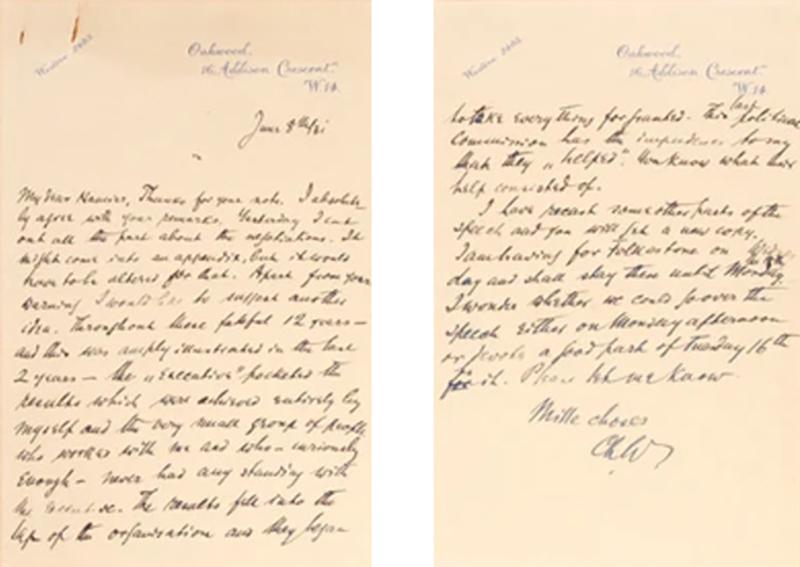 Western 2603
Oakwood,
16, Addison Crescent,
W.14.
June 8th/31
My dear Thanks for your note. I absolute-
ly agree with your remarks. Yesterday I cut
out all the part about the negotiations. It
might come into an appendix, but it would
have to be altered for that. Apart from your
warning I would like to suggest another
idea. Throughout these fateful 12 years –
and this was amply illustrated in the last
2 years – the „Executive" pocketed the
results which were achieved entirely by
myself and the very small group of people
who worked with me and who – curiously
enough – never had any standing with
the executive. The results fell into the
lap of the organisation and they began
Oakwood,
16, Addison Crescent,
W.14.
to take everything for granted. This last political
Commission has the impudence to say
that they „helped". You know what their
help consisted of.
I have recast some other parts of the
speech and you will get a new copy.
I am leaving for Folkestone on
day and shall stay there until Monday.
I wonder whether we could go over the
speech either on Monday afternoon
or devote a good part of Tuesday 16th
for it. Please let me know.
Mille choses
Ch.W.